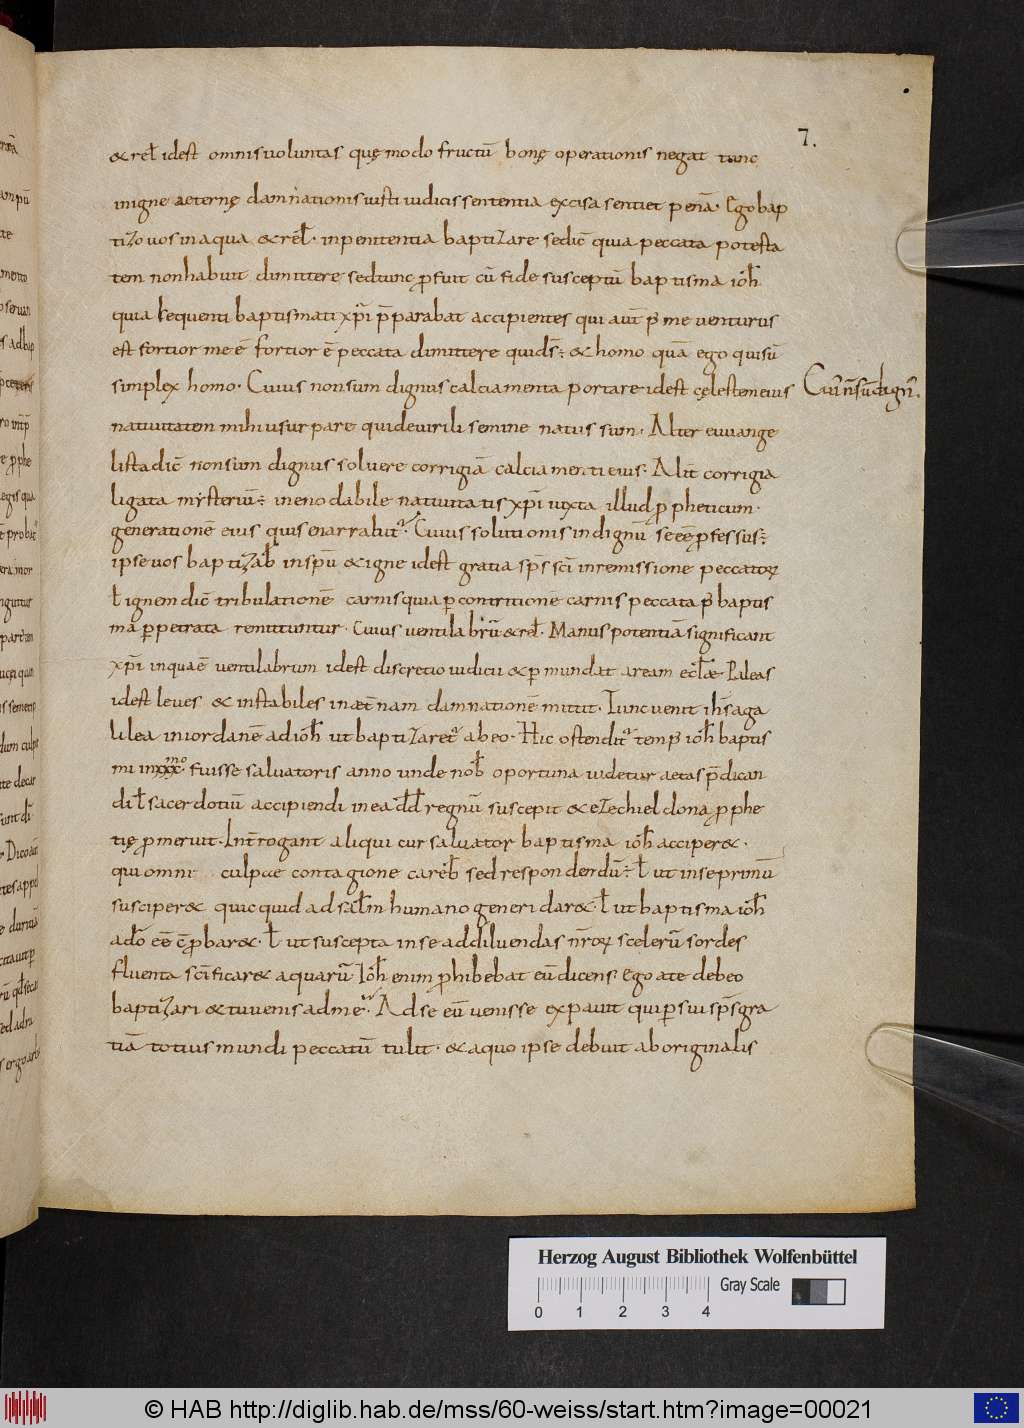 7.
& rel̄ idest omnis voluntas quę modo fructū bonę operationis negat tunc
in igne aeternę damnationis iusti iudicis sententia excisa sentiet penā. Ego bap
tizo vos in aqua & rel̄. in penitentia baptizare se dic̄ quia peccata potesta
tem non habuit dimittere sed tunc ꝓfuit cū fide susceptū baptisma ioh̄
quia sequenti baptismati xp̄i p̄parabat accipientes qui aut̄ p̄ me venturus
est fortior me ē fortior ē peccata dimittere qui ds̄; & homo quā ego qui sū
simplex homo. Cuius non sum dignus calciamenta portare idest cęlestem eius
Cui' n̄ sū dign'.
nativitatem mihi usurpare qui de virili semine natus sum. Alter euuange
lista dic̄ non sum dignus solvere corrigiā calciamenti eius. Alit̄ corrigia
ligata mysteriū; inenodabile nativitatis xp̄i iuxta illud ꝓpheticum.
generationē eius quis enarrabit. Cuius solutionis indignū se eē ꝓfessus;
ipse vos baptizab̄ in sp̄u & igne idest gratia sp̄s sc̄i in remissione peccatoꝝ
ł ignem dic̄ tribulationē carnis quia ꝑ contritionē carnis peccata p̄ baptis
mā ꝑpetrata remittuntur. Cuius ventilabrū & rel̄. Manus potentiā significant
xp̄i in qua ē ventilabrum idest discretio iudicii & ꝑmundat aream ecl̄ae Paleas
idest leves & instabiles in aet̄nam damnationē mittit. Tunc venit ih̄s a ga
lilea in iordanē ad ioh̄ ut baptizaret' ab eo. Hic ostendit' temp̄ ioh̄ baptis
mi in xxxmo fuisse salvatoris anno unde nob̄ oportuna videtur aetas p̄dican
di ł sacerdotiū accipiendi in ea dd̄ regnū suscepit & ezechiel dona ꝓphe
tię ꝓmeruit. Int̄rogant aliqui cur salvator baptisma ioh̄ acciper&.
qui omni culpae contagione careb̄ sed respondendū; ł ut in se primū
susciper& quicquid ad sal̄m humano generi dar&. ł ut baptisma ioh̄
a dō eē c̄ꝓbar&. ł ut suscepta in se ad diluendas nr̄oꝝ scelerū sordes
fluenta sc̄ificar& aquarū Ioh̄ enim ꝓhibebat eū dicens. Ego a te debeo
baptizari & tu venis ad me. Ad se eū venisse expavit qui ꝑ sui sp̄s gra
tiā totius mundi peccatū tulit. & a quo ipse debuit ab originalis
Herzog August Bibliothek Wolfenbüttel
Gray Scale
0 1 2 3 4
© HAB http://diglib.hab.de/mss/60-weiss/start.htm?image=00021